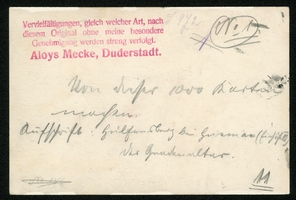 Vervielfältigungen, gleich welcher Art, nach
diesem Original ohne meine besondere
Genehmigung werden streng verfolgt.
Aloys Mecke, Duderstadt.
No. 1.
Von dieser 1000 Karten
machen.
Aufschrift: Hülfensberg bei Geismar (Eichsfeld)
Der Gnadenaltar.
11